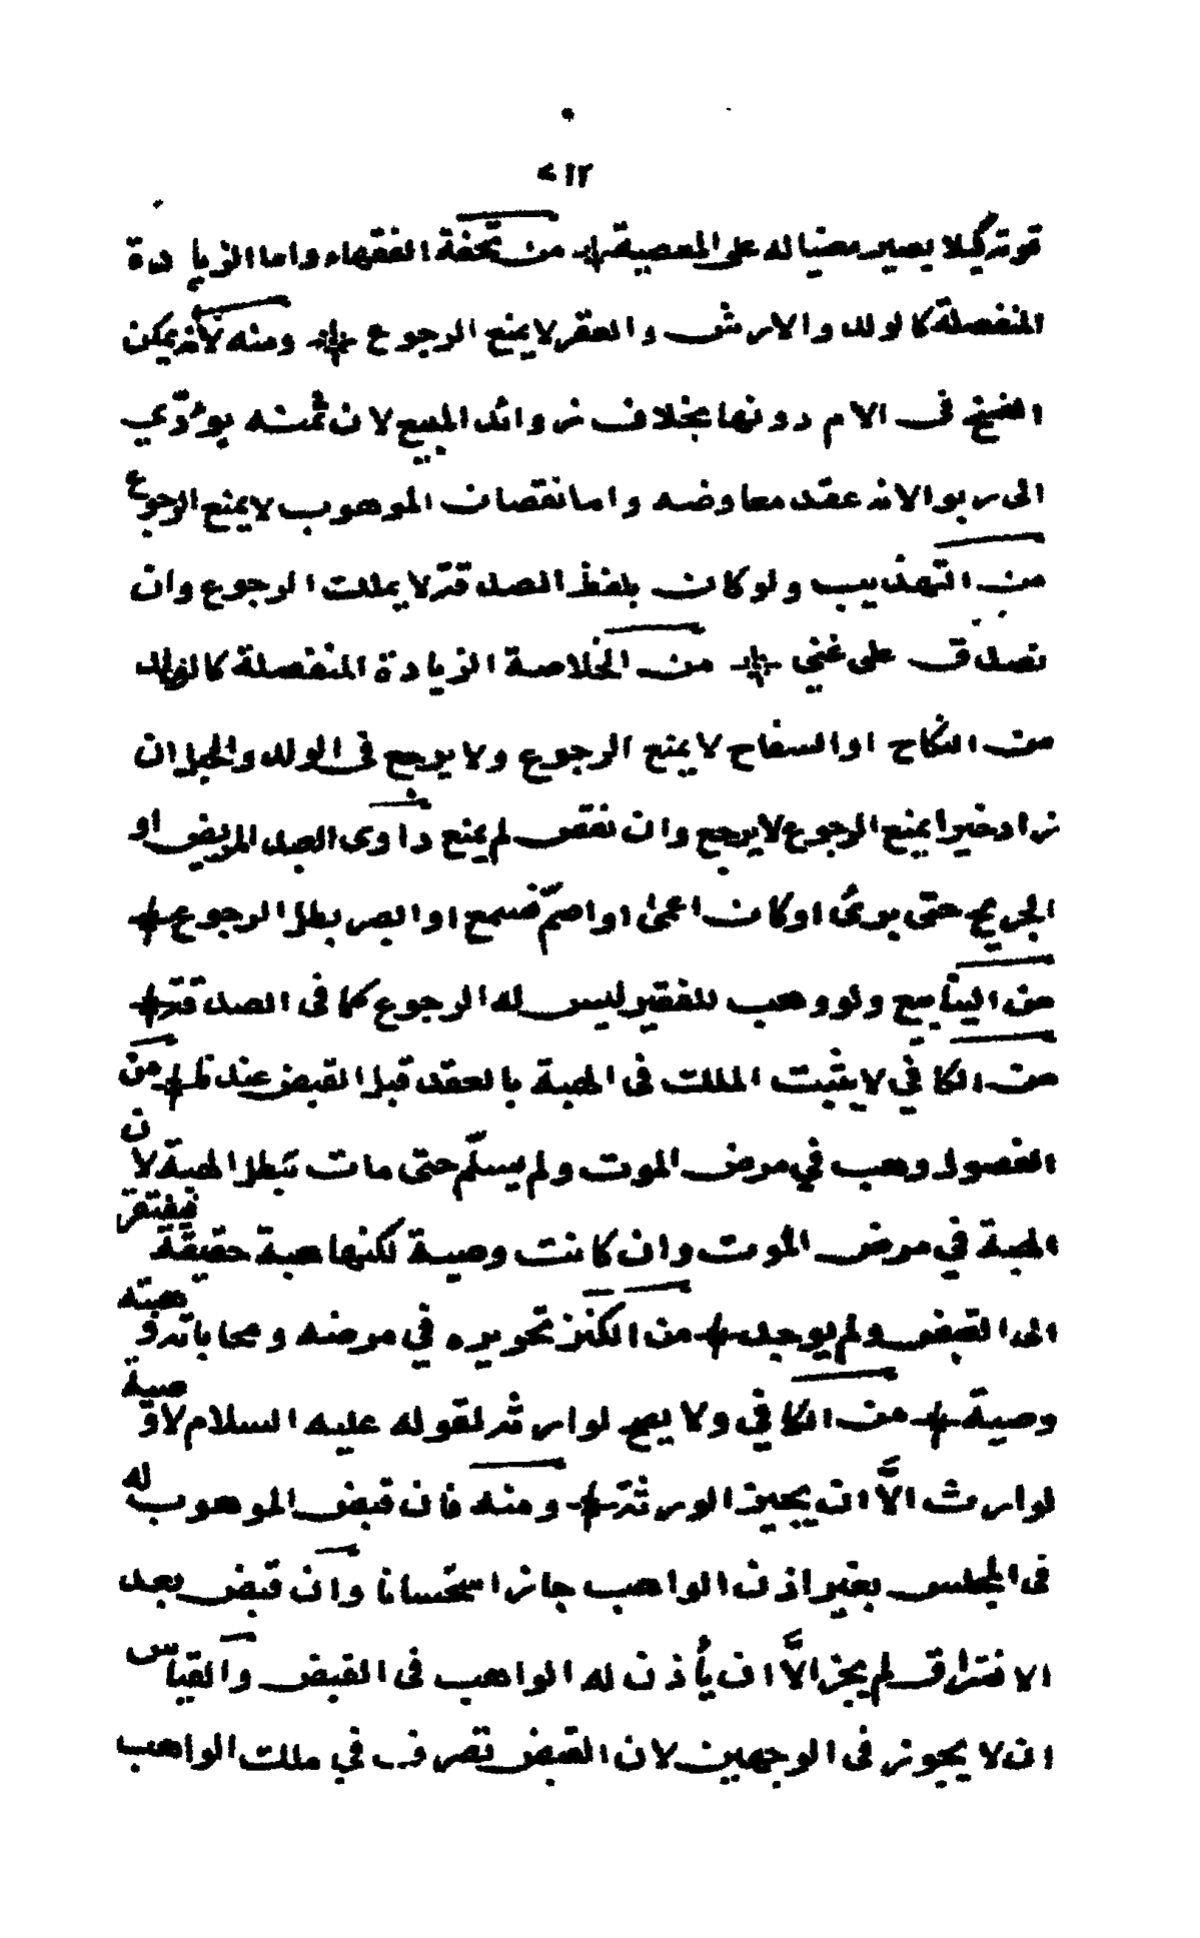 ٧١٢
قوته كيلا يصير معينا له على المعصية من تحفة الفقهاء واما الزيادة
المنفصلة كالولد والارش والعقر لا يمنع الرجوع ومنه لانه يمكن
الفسخ فى الام دونها بخلاف زوائد المبيع لان ثمنه يؤدّي
الى ربوا لانه عقد معاوضه واما نقصان الموهوب لا يمنع الرجوع
من التهذيب ولو كان بلفظ الصدقة لا يملك الرجوع وان
تصدق على غني من الخلاصة الزيادة المنفصلة كالولد
من النكاح او السفاح لا يمنع الرجوع ولا يرجع فى الولد والحبل ان
زاد خيرا يمنع الرجوع لا يرجع وان نقص لم يمنع داوى العبد المريض او
الجريح حتى برئ او كان اعمى او اصمّ فسمع او ابصر بطل الرجوع
من الينابيع ولو وهب للفقير ليس له الرجوع كما فى الصدقة
من الكافي لا يثبت الملك فى الهبة بالعقد قبل القبض عندنا من
الفصول وهب في مرض الموت ولم يسلّم حتى مات تبطل الهبة لان
الهبة في مرض الموت وان كانت وصية لكنها هبة حقيقة فيفتقر
الى القبض ولم يوجد من الكنز تحريره في مرضه ومحاباته وهبته
وصية من الكافي ولا يصح لوارثه لقوله عليه السلام لا وصية
لوارث الاّ ان يجيز الورثة ومنه فان قبض الموهوب له
فى المجلس بغير اذن الواهب جاز استحسانا وان قبض بعد
الافتراق لم يجز الاّ ان يأذن له الواهب فى القبض والقياس
ان لا يجوز فى الوجهين لان القبض تصرف في ملك الواهب